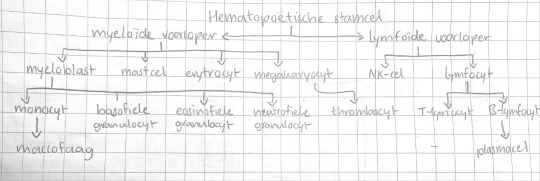 Hematopoëtische stamcel
myeloïde voorloper
lymfoïde voorloper
myeloblast mastcel erytrocyt megakaryocyt NK-cel lymfocyt
monocyt basofiele granulocyt eosinofiele granulocyt neutrofiele granulocyt thrombocyt T-lymfocyt B-lymfocyt
macrofaag
plasmacel